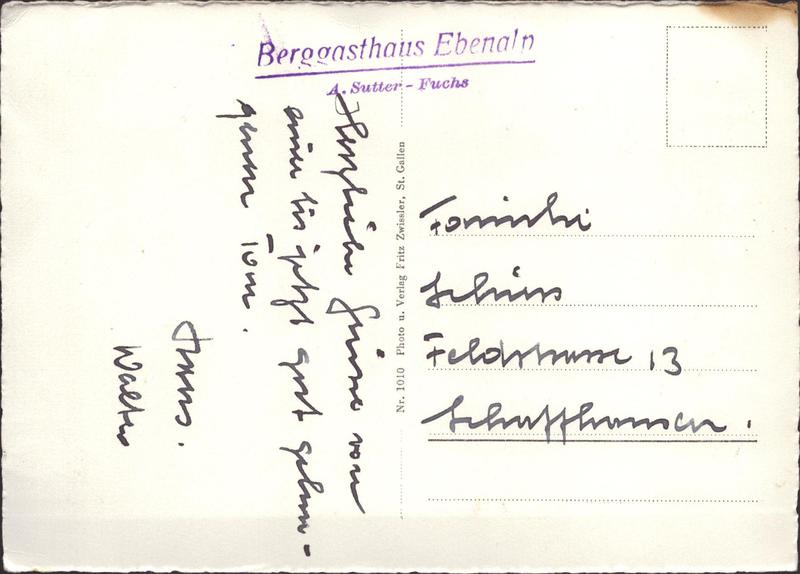 Berggasthaus Ebenalp
A. Sutter - Fuchs
Herzliche Grüsse von
einer bis jetzt gut gelun-
genen Tour.
Walter
Nr. 1010 Photo u. Verlag Fritz Zwissler, St. Gallen
Familie
Schiess
Feldstrasse 13
Schaffhausen.